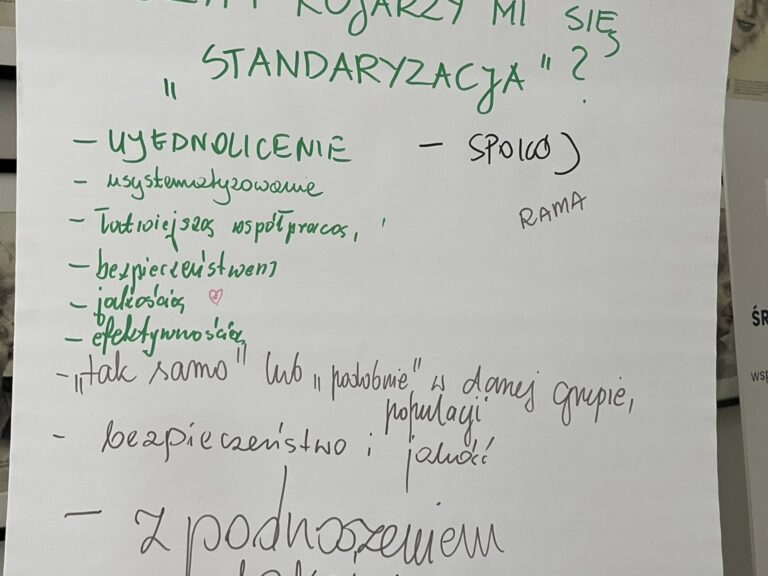 KOJARZY MI SIĘ
„STANDARYZACJA"?
- UJEDNOLICENIE
- usystematyzowanie
- łatwiejszą współpracą,
- bezpieczeństwem
- jakością
- efektywnością
- SPOKÓJ
RAMA
- „tak samo" lub „podobnie" w danej grupie,
populacji
- bezpieczeństwo i jakość
- z podnoszeniem
ŚR
wsp